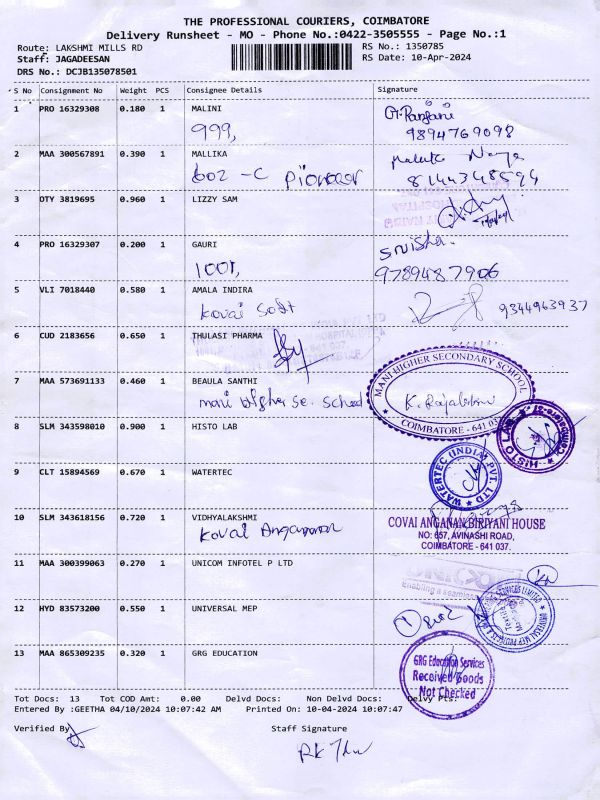 THE PROFESSIONAL COURIERS, COIMBATORE
Delivery Runsheet - MO - Phone No.:0422-3505555 - Page No.:1
Route: LAKSHMI MILLS RD
RS No.: 1350785
Staff: JAGADEESAN
RS Date: 10-Apr-2024
DRS No.: DCJB135078501
S No Consignment No Weight PCS Consignee Details Signature
1 PRO 16329308 0.180 1 MALINI
999,
9894769098
2 MAA 300567891 0.390 1 MALLIKA
602 -C Pioneer
8144348594
3 DTY 3819695 0.960 1 LIZZY SAM
4 PRO 16329307 0.200 1 GAURI
1001,
9789487906
5 VLI 7018440 0.580 1 AMALA INDIRA
Kovai Soft
9344963937
6 CUD 2183656 0.650 1 THULASI PHARMA
7 MAA 573691133 0.460 1 BEAULA SANTHI
mani higher se. School
MANI HIGHER SECONDARY SCHOOL
COIMBATORE - 641 037
8 SLM 343598010 0.900 1 HISTO LAB
HISTO LAB
9 CLT 15894569 0.670 1 WATERTEC
WATERTEC (INDIA) PVT. LTD
10 SLM 343618156 0.720 1 VIDHYALAKSHMI
Kovai
COVAI ANGANAN BIRIYANI HOUSE
NO: 657, AVINASHI ROAD,
COIMBATORE - 641 037.
11 MAA 300399063 0.270 1 UNICOM INFOTEL P LTD
12 HYD 83573200 0.550 1 UNIVERSAL MEP
13 MAA 865309235 0.320 1 GRG EDUCATION
GRG Education Services
Received Goods
Not Checked
Tot Docs: 13 Tot COD Amt: 0.00 Delvd Docs: Non Delvd Docs: Delvy Pts:
Entered By :GEETHA 04/10/2024 10:07:42 AM Printed On: 10-04-2024 10:07:47
Verified By
Staff Signature